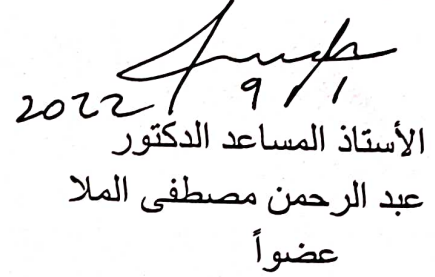 2022/ 9 / 1
الأستاذ المساعد الدكتور
عبد الرحمن مصطفى الملا
عضواً